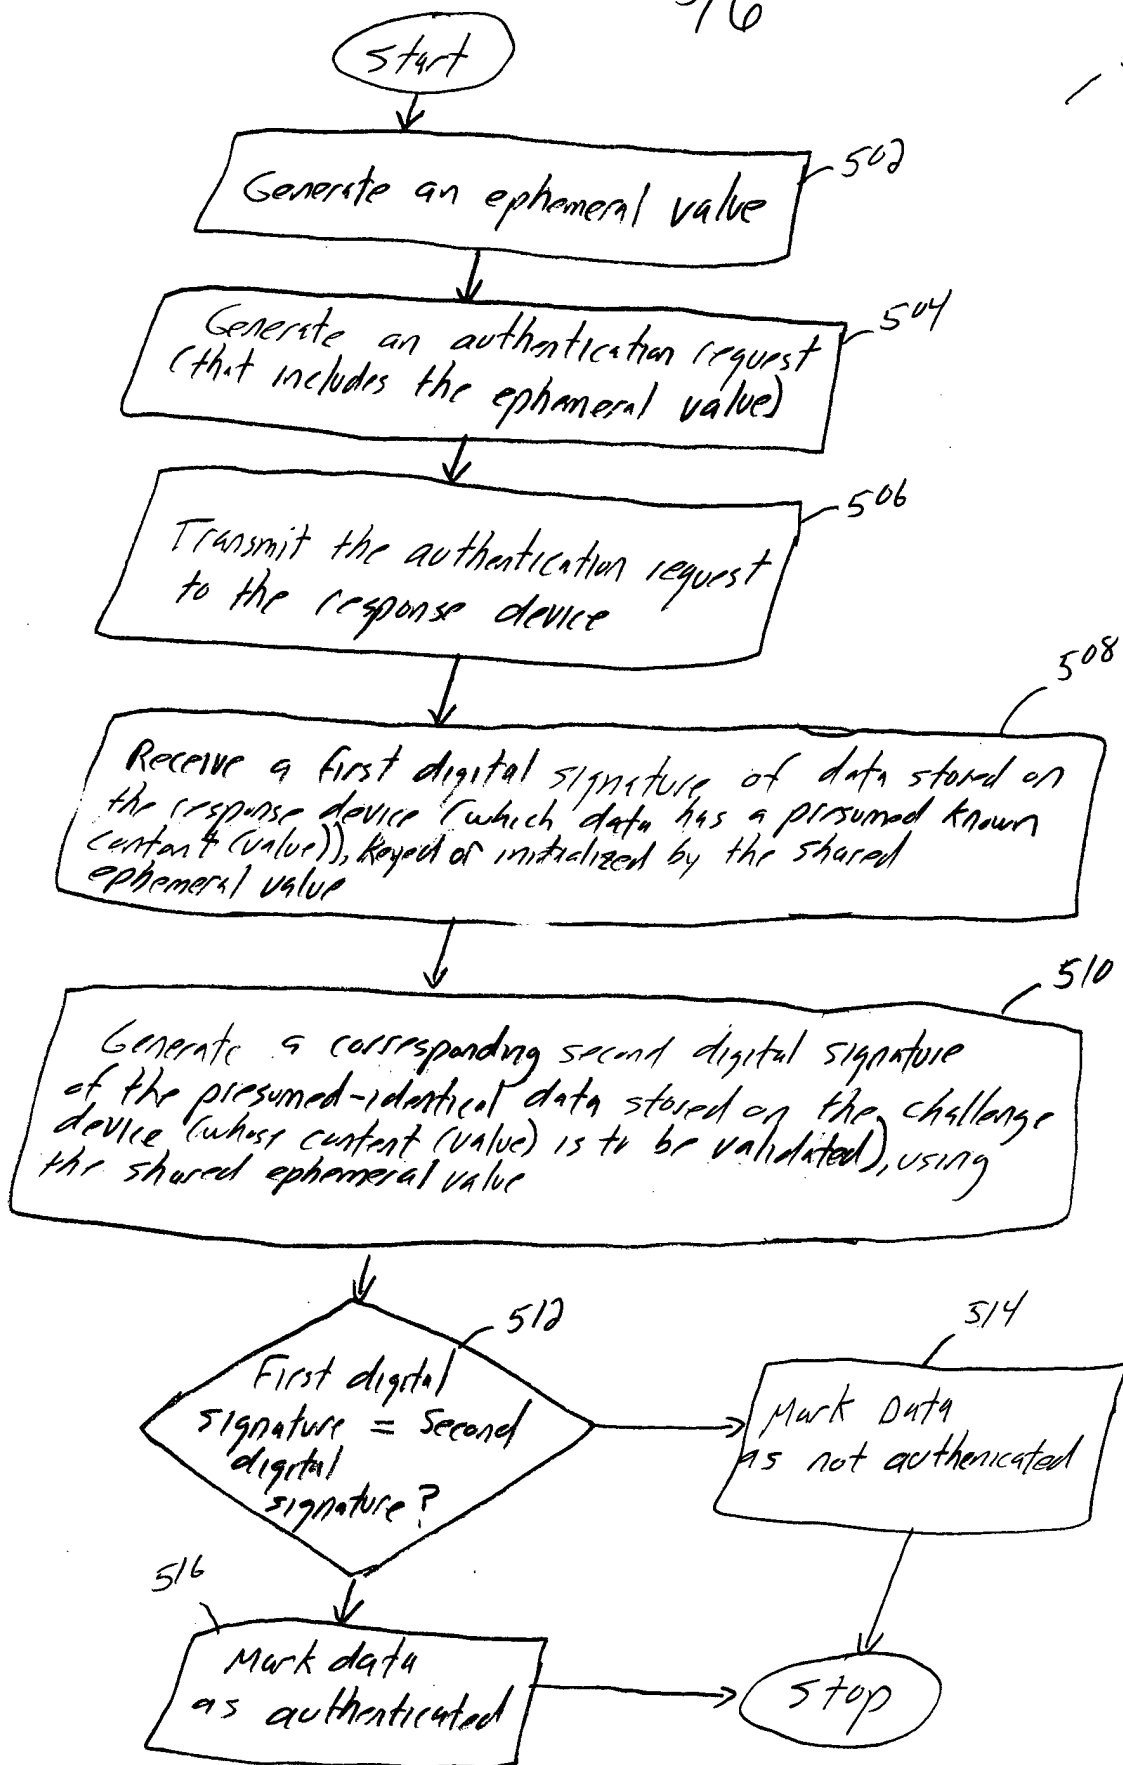 5/6
Start
502
Generate an ephemeral value
504
Generate an authentication request
(that includes the ephemeral value)
506
Transmit the authentication request
to the response device
508
Receive a first digital signature of data stored on
the response device (which data has a presumed known
content (value)), keyed or initialized by the shared
ephemeral value
510
Generate a corresponding second digital signature
of the presumed-identical data stored on the challenge
device (whose content (value) is to be validated), using
the shared ephemeral value
512
First digital
signature = Second
digital
signature?
514
Mark Data
as not authenicated
516
Mark data
as authenticated
Stop